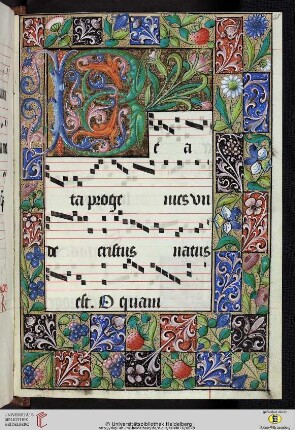 B
e a
ta proge nies vn
de cristus natus
est. O quam
UNIVERSITÄTS-
BIBLIOTHEK
HEIDELBERG
© Universitätsbibliothek Heidelberg